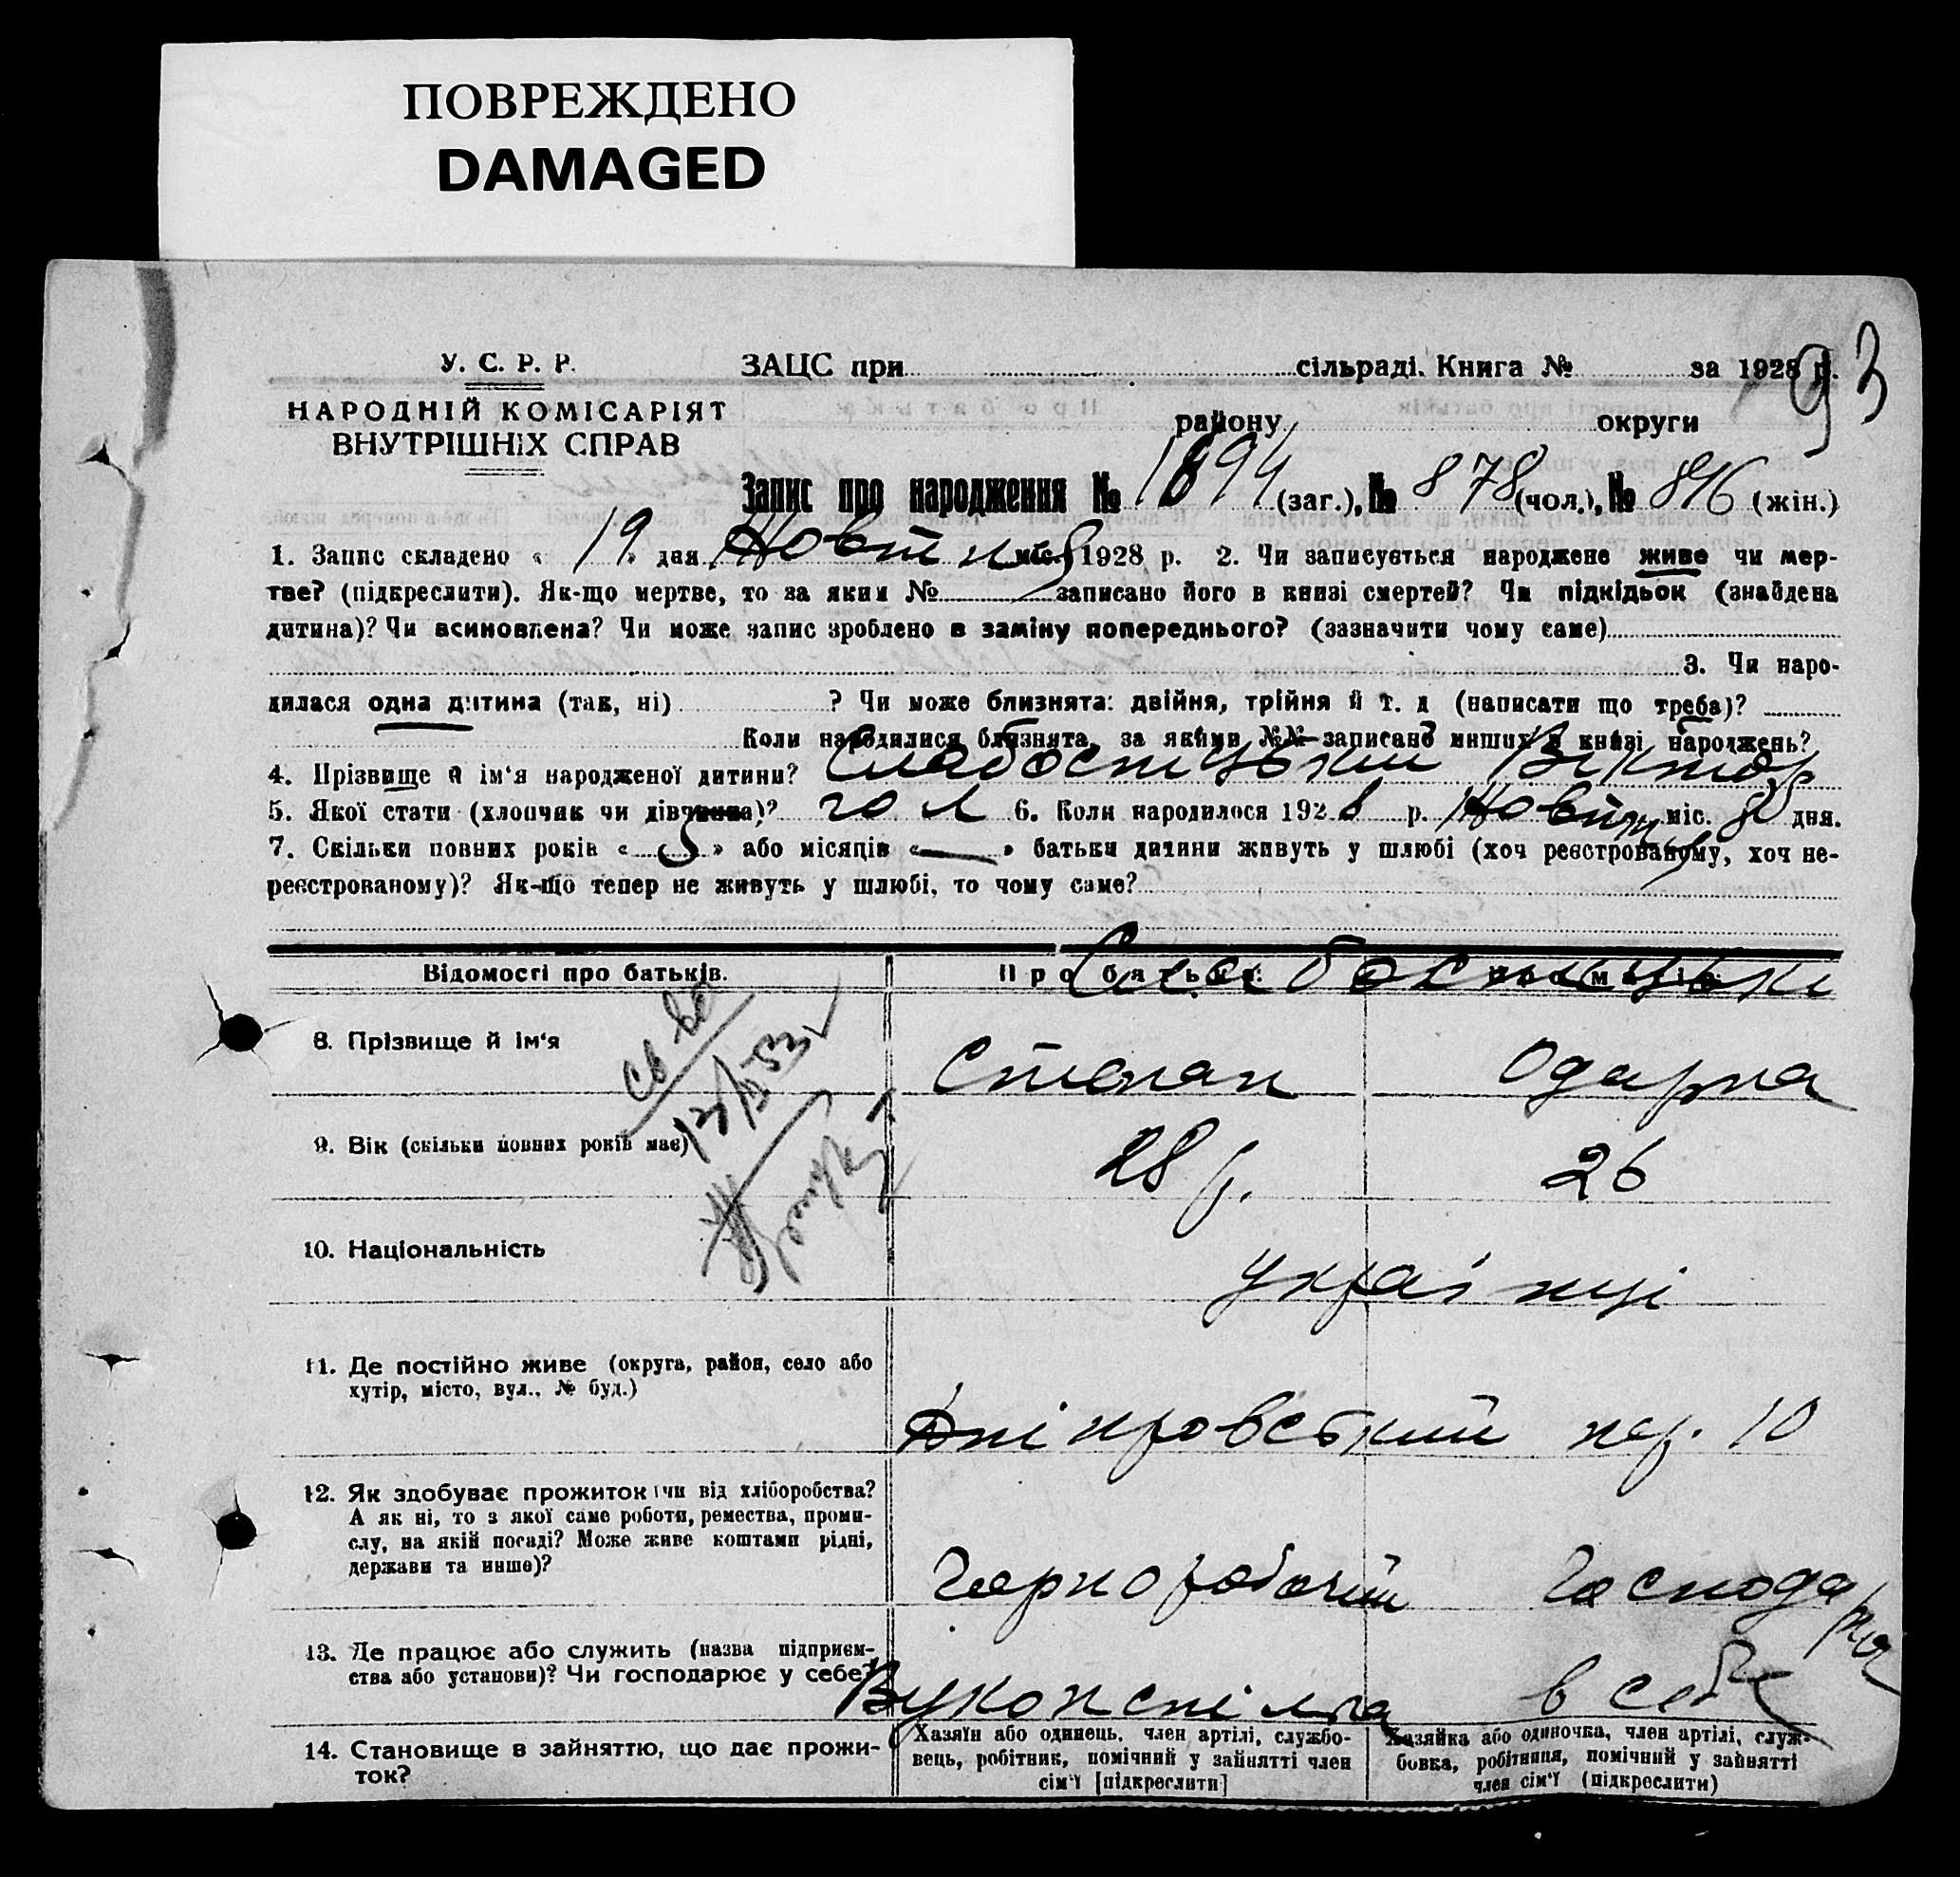 ПОВРЕЖДЕНО
DAMAGED
93
У. С. Р. Р. ЗАЦС при сільраді. Книга № за 1928 р.
НАРОДНІЙ КОМІСАРІЯТ
ВНУТРІШНІХ СПРАВ
району округи
Запис про народження № 1694 (заг.), № 878 (чол.), № 816 (жін.)
1. Запис складено « 19 » дня Новтня міс. 1928 р. 2. Чи записується народжене живе чи мер-
тве? (підкреслити). Як-що мертве, то за яким № записано його в книзі смертей? Чи підкідьок (знайдена
дитина)? Чи всиновлена? Чи може запис зроблено в заміну попереднього? (зазначити чому саме)
3. Чи наро-
дилася одна дитина (так, ні) ? Чи може близнята: двійня, трійня й т. д (написати що треба)?
Коли народилися близнята, за якими №№ записано инших в книзі народжень?
4. Прізвище й ім'я народженої дитини? Слабостицький Віктор
5. Якої стати (хлопчик чи дівчина)? чол 6. Коли народилося 1928 р. Новтня міс. дня.
7. Скільки повних років « 5 » або місяців « — » батьки дитини живуть у шлюбі (хоч реєстрованому, хоч не-
реєстрованому)? Як-що тепер не живуть у шлюбі, то чому саме?
Відомості про батьків. Про батька: Про матір:
8. Прізвище й ім'я Степан Одарка
9. Вік (скільки повних років має) 28 р. 26
10. Національність українці
11. Де постійно живе (округа, район, село або
хутір, місто, вул., № буд.)
Дніпровський пер. 10
12. Як здобуває прожиток (чи від хліборобства?
А як ні, то з якої саме роботи, ремества, проми-
слу, на якій посаді? Може живе коштами рідні,
держави та инше)?
Чорноробочий Господарка
13. Де працює або служить (назва підприєм-
ства або установи)? Чи господарює у себе?
Вукопспілка в себе
14. Становище в зайняттю, що дає прожи-
ток?
Хазяїн або одинець, член артілі, службо-
вець, робітник, помічний у зайнятті член
сім'ї [підкреслити]
Хазяйка або одиночка, член артілі, служ-
бовка, робітниця, помічний у зайнятті
член сім'ї (підкреслити)